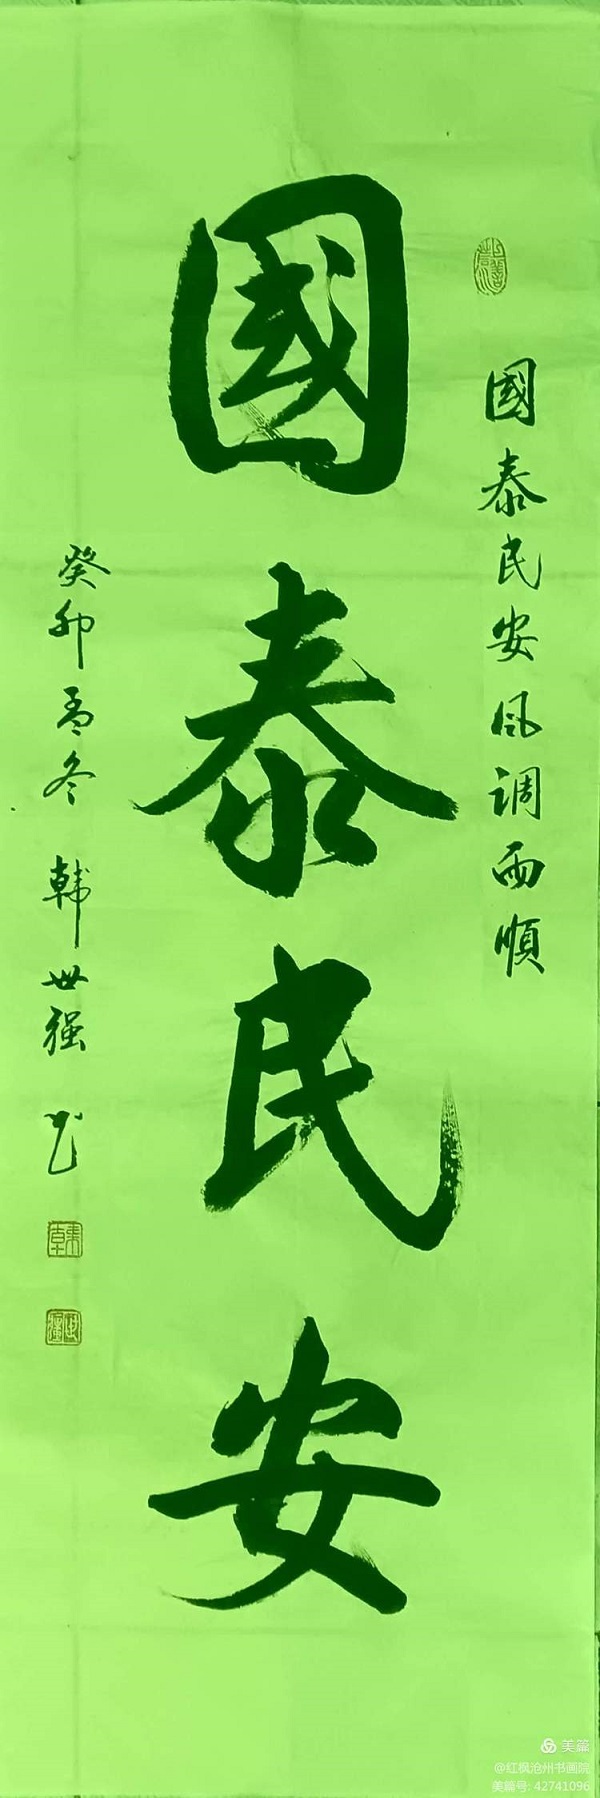 國泰民安风调雨順
國泰民安
癸卯孟冬 韩世强 书
美篇
@红枫沧州书画院
美篇号: 42741096